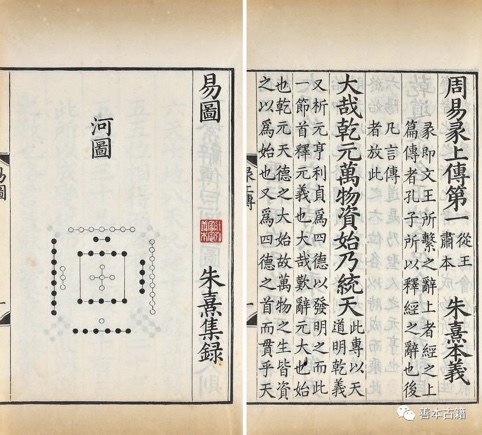 周易彖上傳第一 從王肅本 朱熹本義
彖即文王所繫之辭上者經之上
篇傳者孔子所以釋經之辭也後
凡言傳
者放此
大哉乾元萬物資始乃統天 此專以天
道明乾義
又析元亨利貞爲四德以發明之而此
一節首釋元義也大哉歎辭元大也始
也乾元天德之大始故萬物之生皆資
之以爲始也又爲四德之首而貫乎天
易圖
朱熹集錄
河圖
易圖
善本古籍